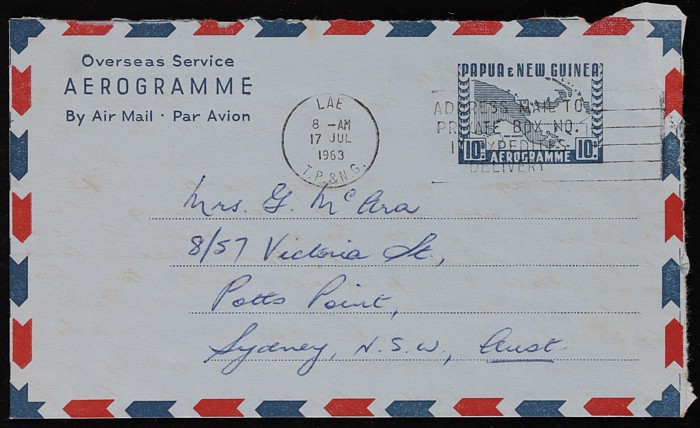 Overseas Service
AEROGRAMME
By Air Mail · Par Avion
LAE
8 -AM
17 JUL
1963
T.P.&N.G.
PAPUA & NEW GUINEA
10D 10D
AEROGRAMME
ADDRESS MAIL TO
PRIVATE BOX NO.
IT EXPEDITES
DELIVERY
Mrs. G. McAra
8/57 Victoria St.,
Potts Point,
Sydney, N.S.W., Aust.